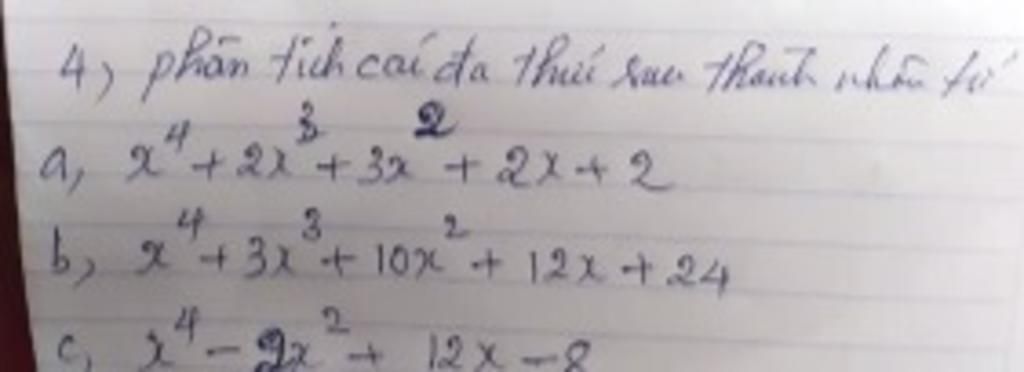 4, phân tích các đa thức sau thành nhân tử
a, x⁴ + 2x³ + 3x² + 2x + 2
b, x⁴ + 3x³ + 10x² + 12x + 24
c, x⁴ - 2x² + 12x - 8